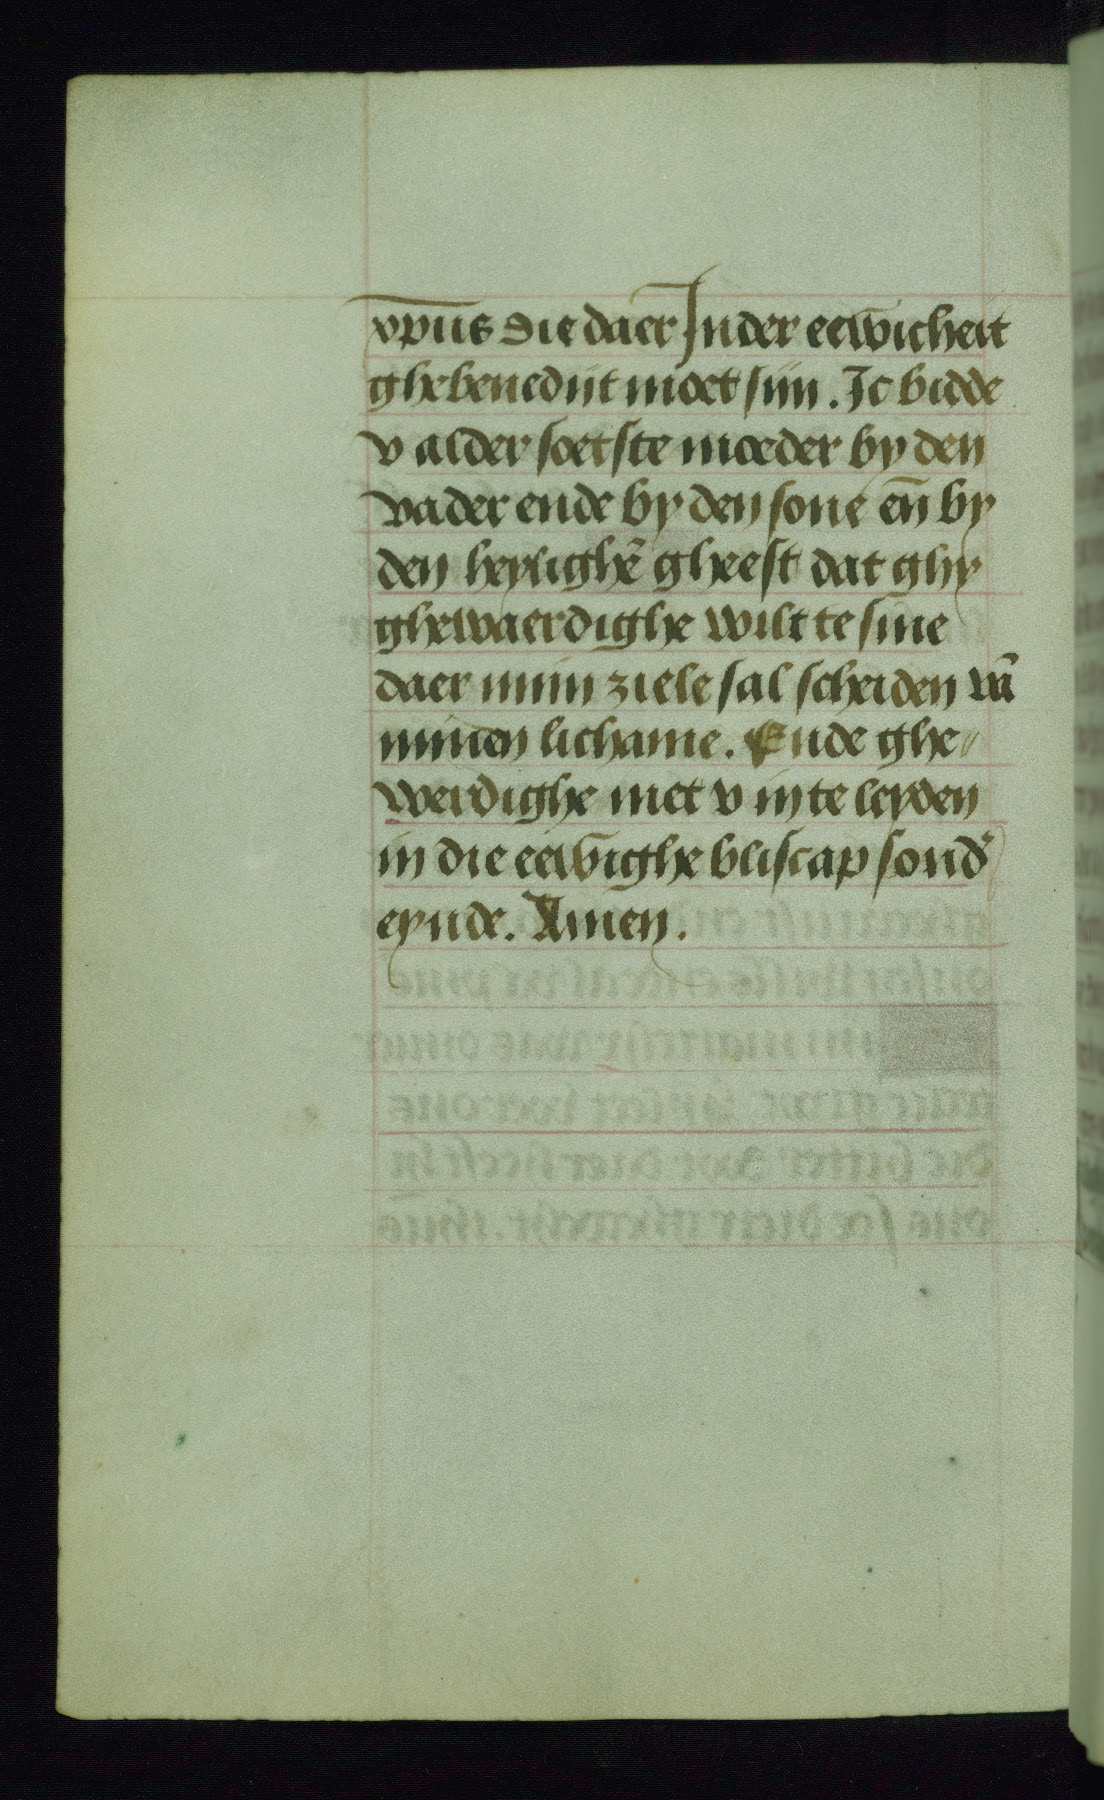 xp̄us die daer Inder eewicheit
ghebenedijt moet sijn. Ic bidde
v alder soetste moeder by den
vader ende by den sone en̄ by
den heylighē gheest dat ghy
ghewaerdighe wilt te sine
daer mijn ziele sal scheiden vā
minen lichame. Ende ghe//
werdighe met v in te leyden
in die eewighe bliscap sond'
eynde. Amen.